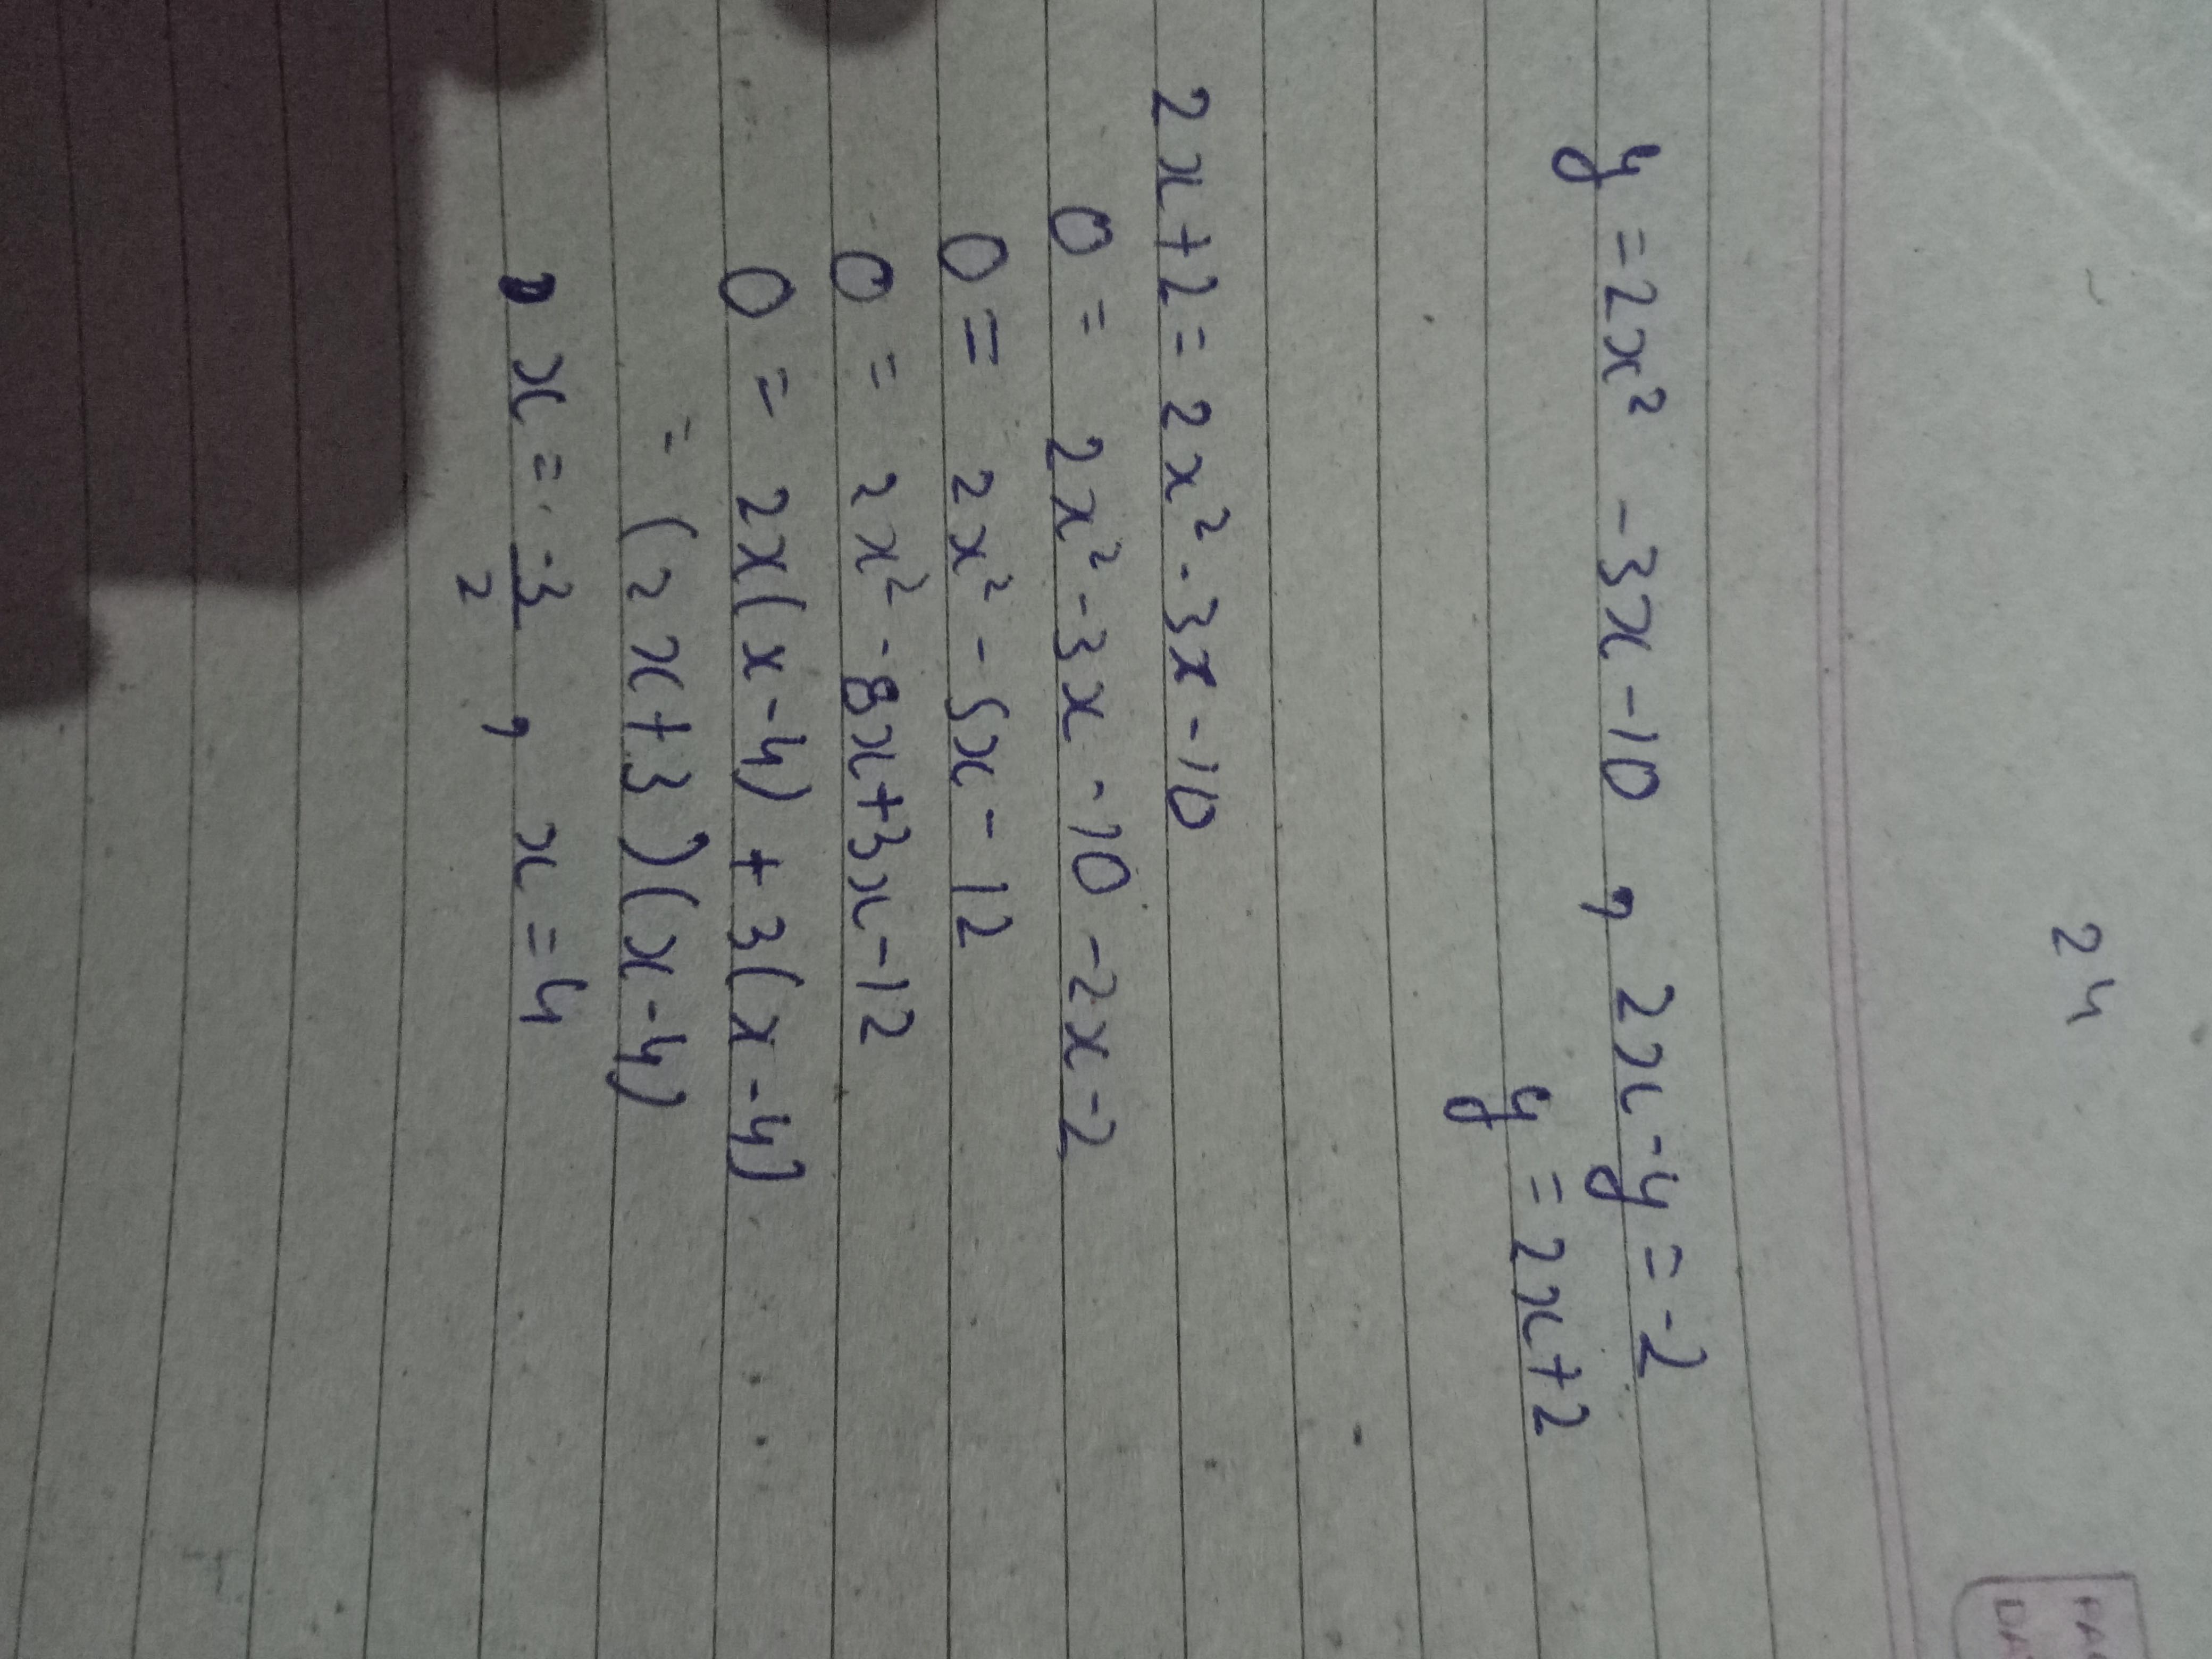 24
y = 2x² - 3x - 10 , 2x - y = -2
y = 2x + 2
2x + 2 = 2x² - 3x - 10
0 = 2x² - 3x - 10 - 2x - 2
0 = 2x² - 5x - 12
0 = 2x² - 8x + 3x - 12
0 = 2x(x - 4) + 3(x - 4)
= (2x + 3)(x - 4)
x = -3/2 , x = 4